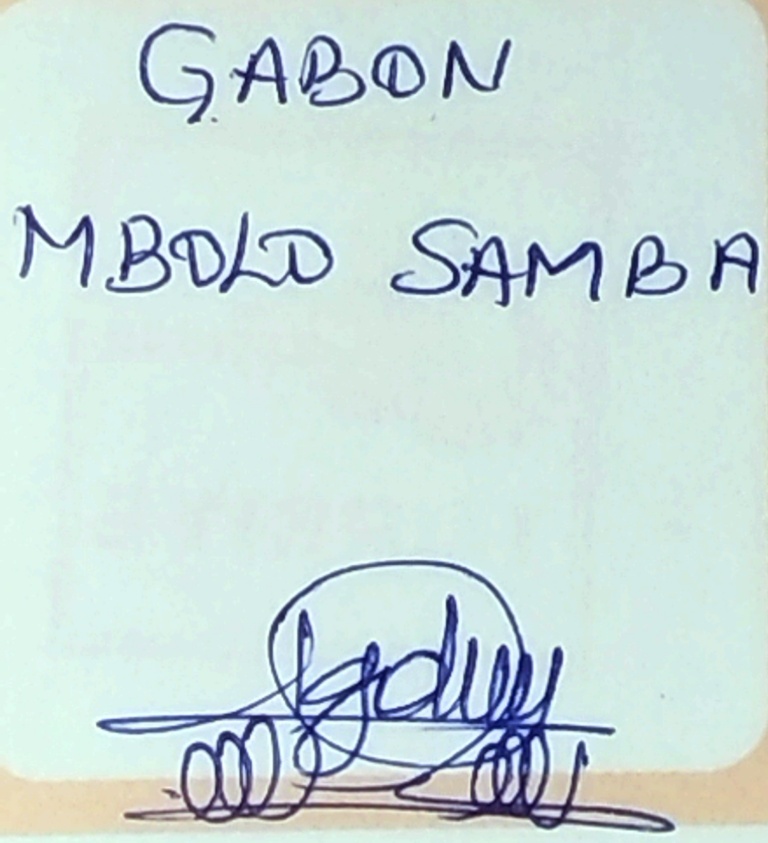 GABON
MBOLO SAMBA